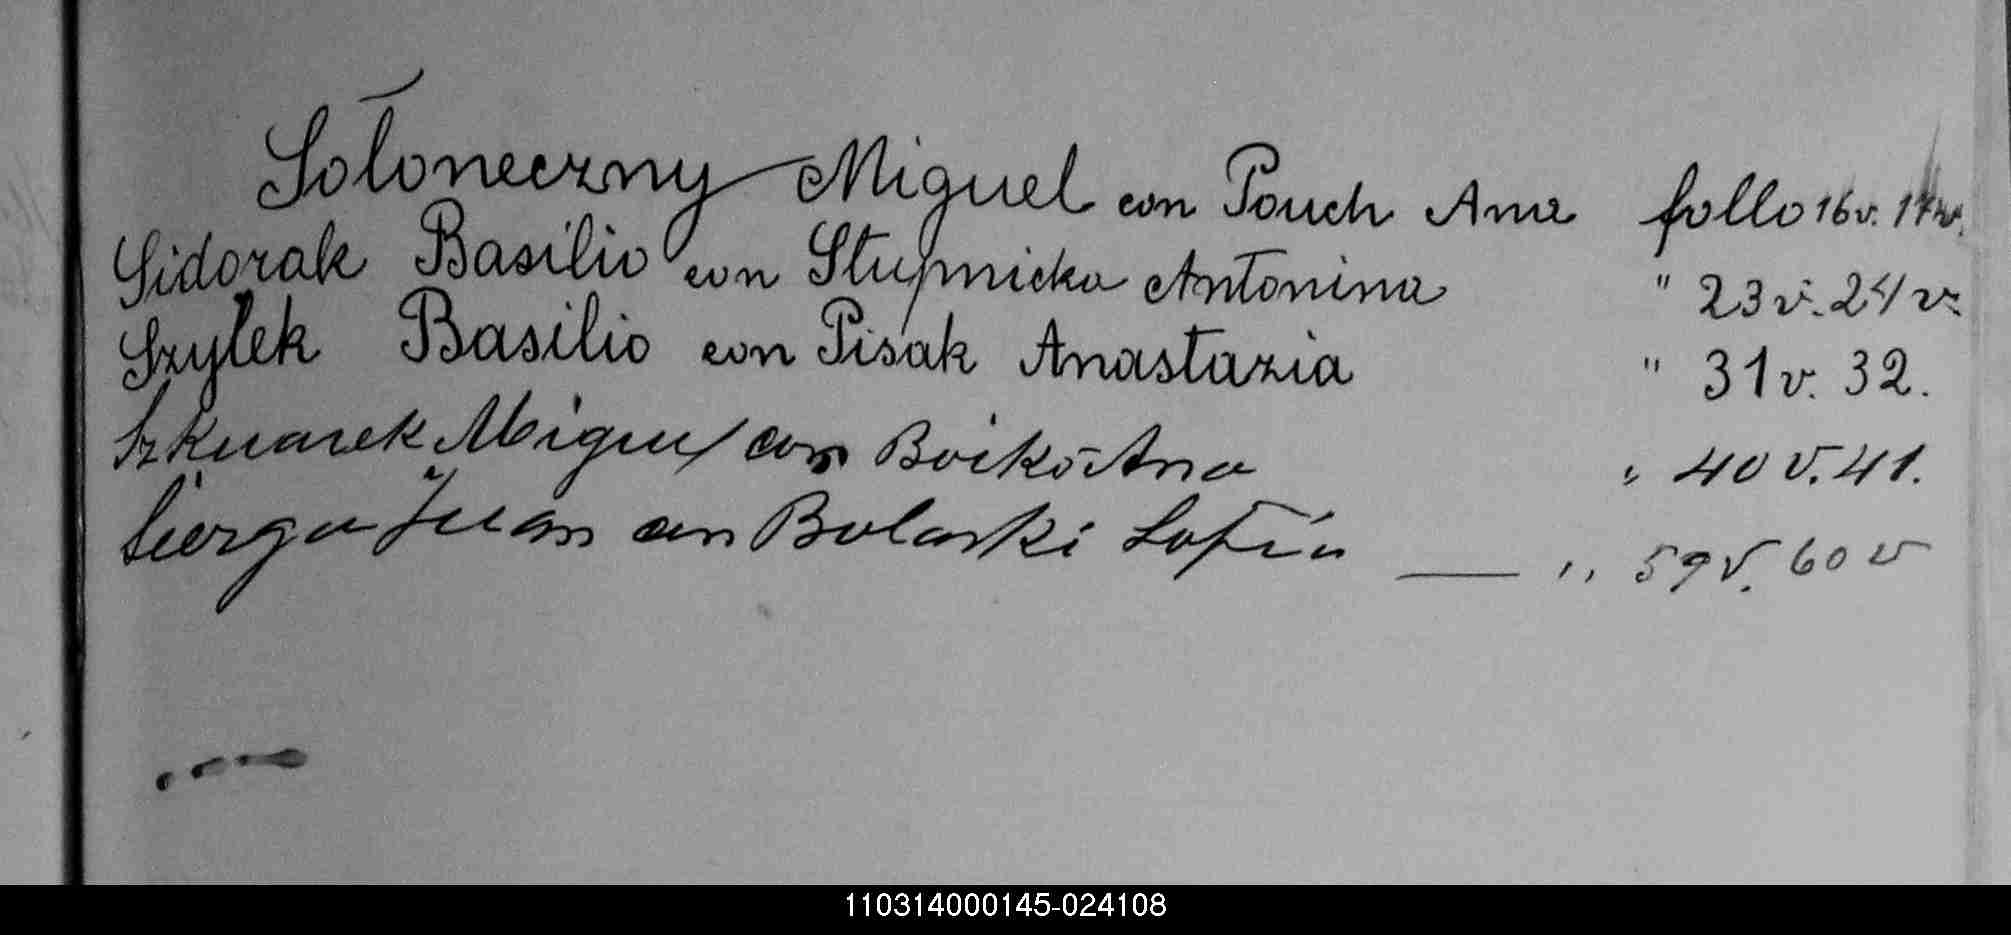 Sołoneczny Miguel con Pouch Ana follo 16 v. 17 v.
Sidorak Basilio con Stupnicka Antonina " 23 v. 24 v.
Szylek Basilio con Pisak Anastazia " 31 v. 32.
Miguel con Boiko Ana " 40 v. 41.
Juan con Sofía — " 59 v. 60 v
110314000145-024108